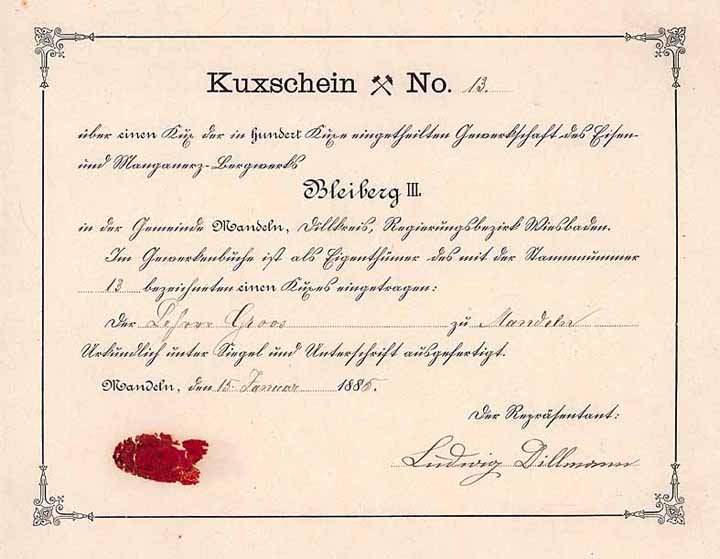 Kuxschein ⚒ No. 13.
über einen Kux der in hundert Kuxe eingetheilten Gewerkschaft des Eisen-
und Manganerz-Bergwerks
Bleiberg III.
in der Gemeinde Mandeln, Dillkreis, Regierungsbezirk Wiesbaden.
Im Gewerkenbuche ist als Eigenthümer des mit der Stammnummer
13 bezeichneten einen Kuxes eingetragen:
Der Lehrer Groos zu Mandeln
Urkundlich unter Siegel und Unterschrift ausgefertigt.
Mandeln, den 15. Januar 1885.
Der Repräsentant:
Ludwig Dillmann